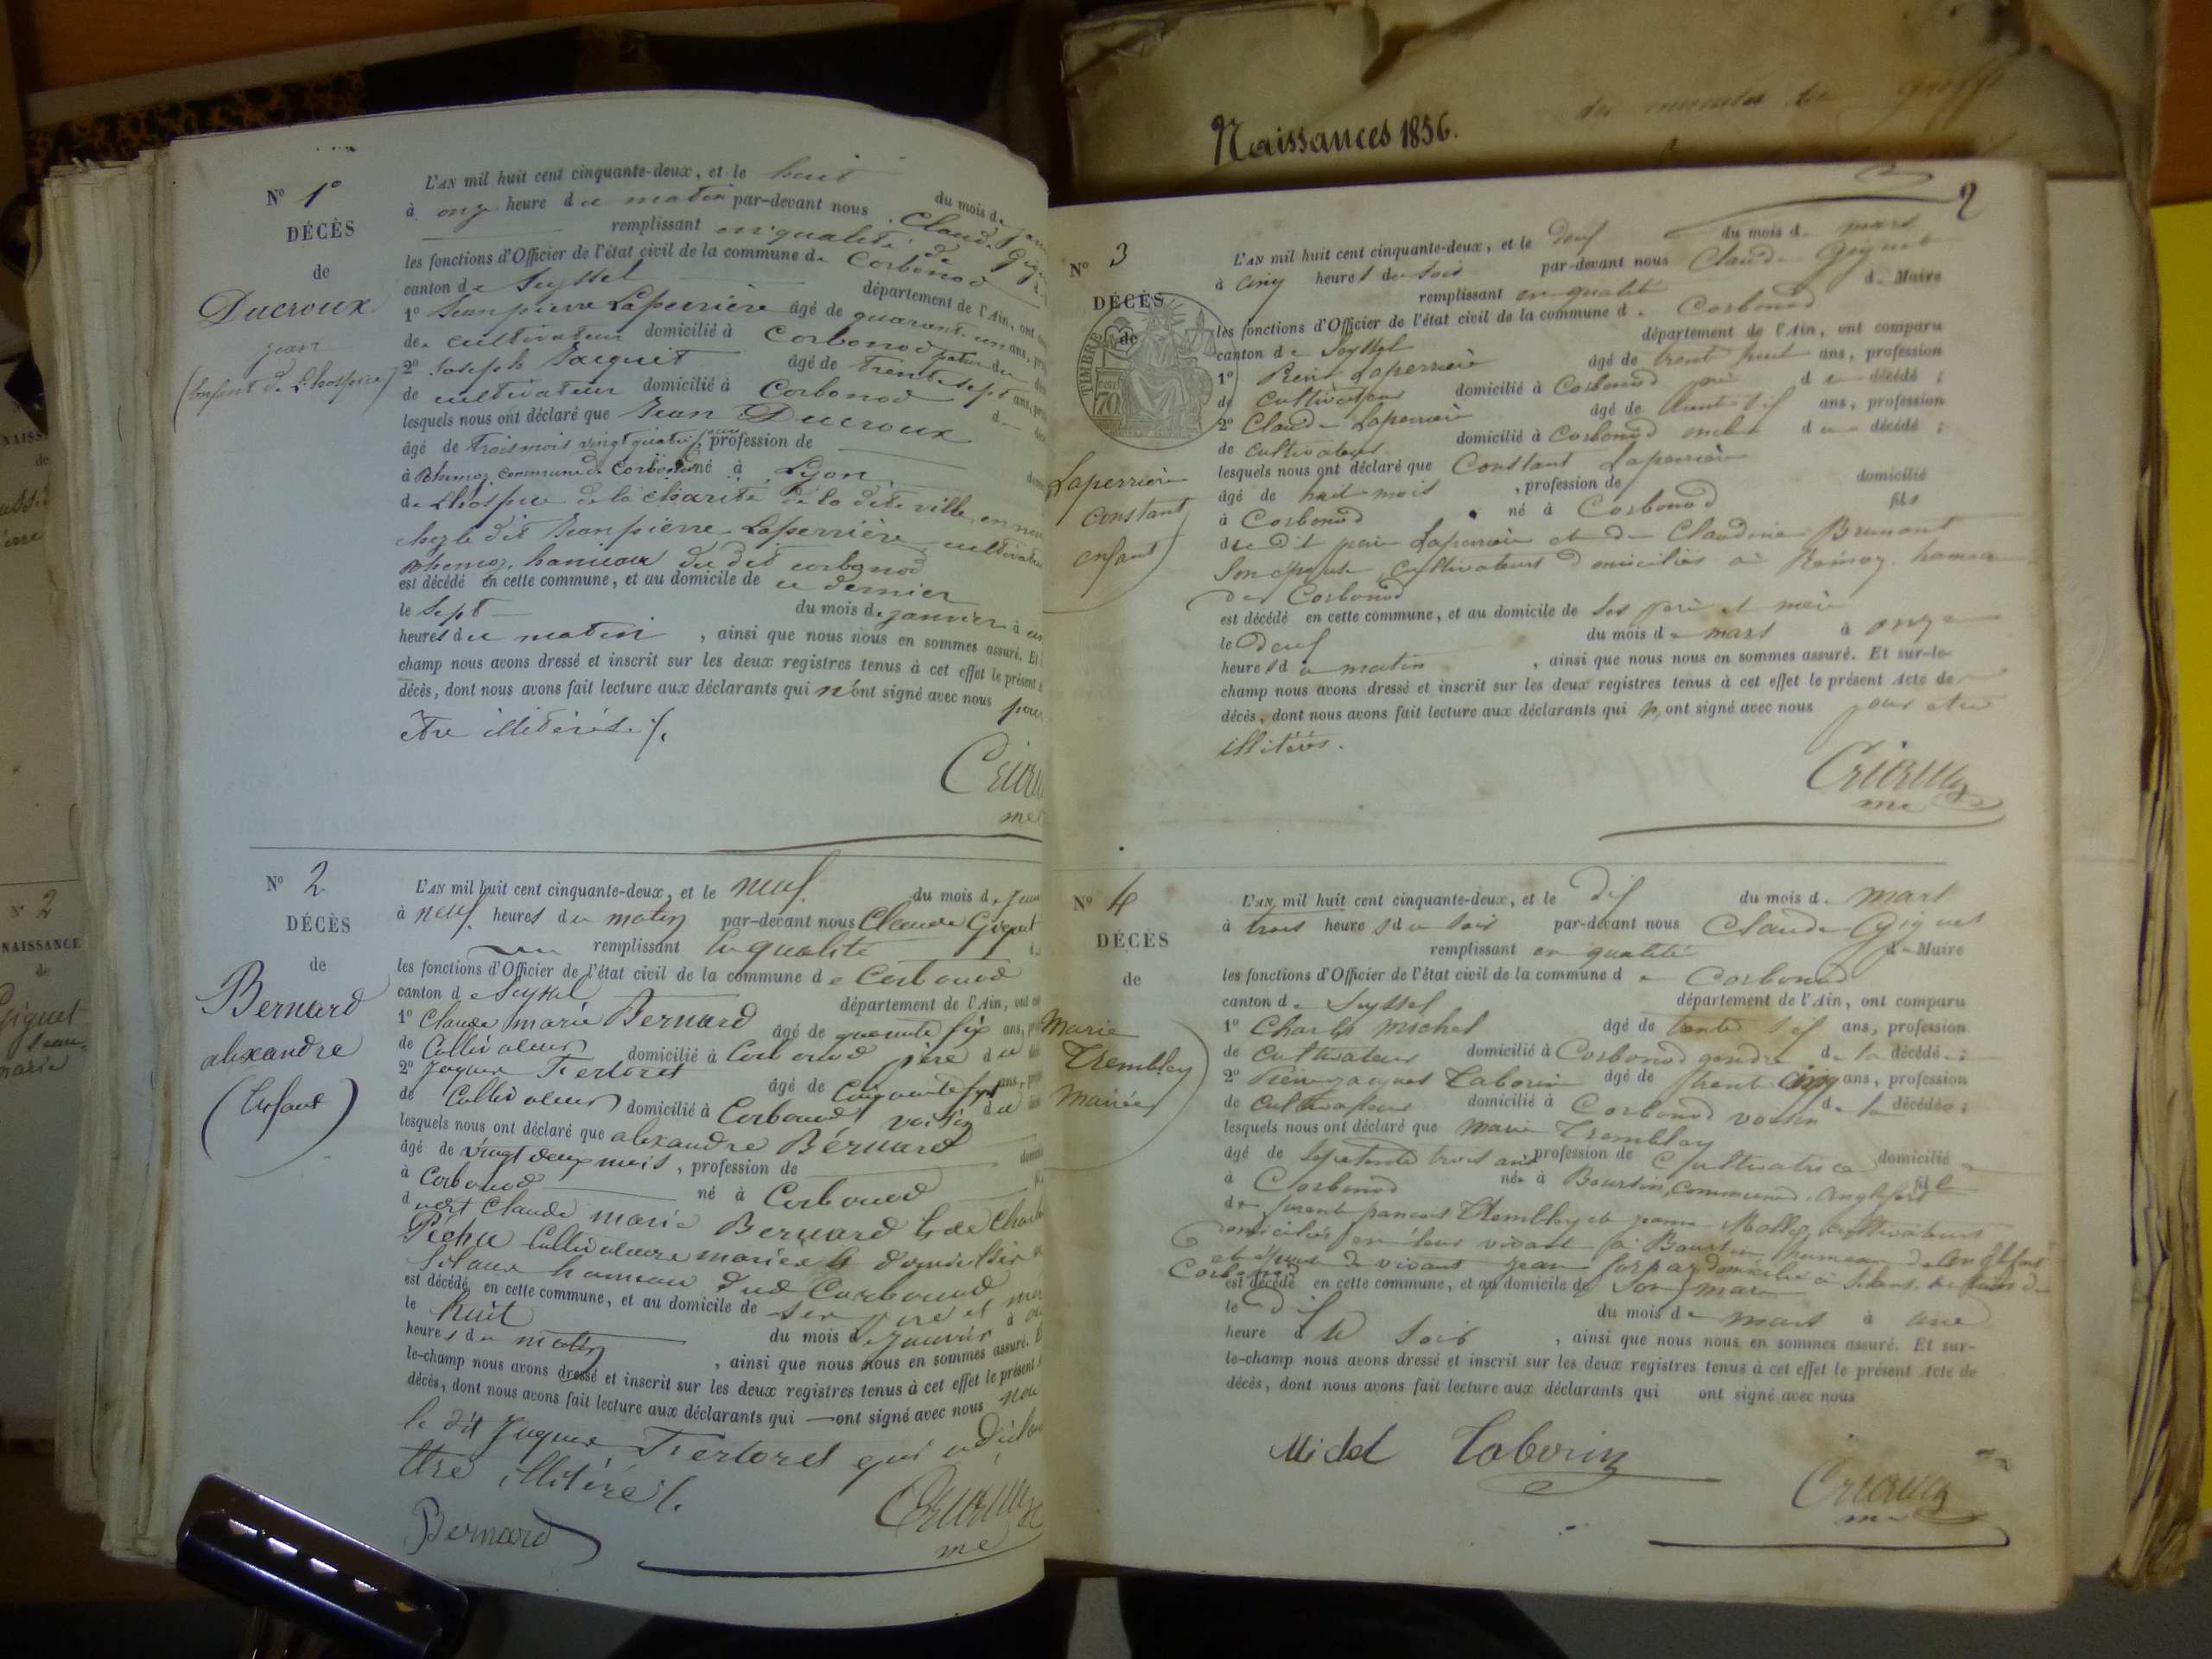 Naissances 1856.
N° 1°
DÉCÈS
de
Ducroux
jean
(Enfant de L'hospice)
L'AN mil huit cent cinquante-deux, et le huit du mois de
à onze heure du matin par-devant nous Claude
remplissant en qualité de
les fonctions d'Officier de l'état civil de la commune de Corbonod
canton de Seyssel département de l'Ain, ont
1° Jean pierre Laperrière âgé de quarante un ans,
de cultivateur domicilié à Corbonod
2° Joseph Jacquet âgé de trente sept ans,
de cultivateur domicilié à Corbonod
lesquels nous ont déclaré que Jean Ducroux
âgé de trois mois vingt quatre jours profession de
à Rhemoz commune de Corbonod né à Lyon
de Lhospice de la charité de la dite ville en
chez le dit Jean pierre Laperrière cultivateur
Rhemoz, hameau du dit corbonod
est décédé en cette commune, et au domicile de ce dernier
le Sept du mois de janvier à
heures du matin, ainsi que nous nous en sommes assuré. Et
champ nous avons dressé et inscrit sur les deux registres tenus à cet effet le présent
décès, dont nous avons fait lecture aux déclarants qui n'ont signé avec nous pour
être illitérés./.
N° 2
DÉCÈS
de
Bernard
alexandre
(Enfant)
L'AN mil huit cent cinquante-deux, et le neuf du mois de
à neuf heures du matin par-devant nous Claude Gignet
remplissant en qualité
les fonctions d'Officier de l'état civil de la commune de Corbonod
canton de Seyssel département de l'Ain, ont
1° Claude marie Bernard âgé de quarante six ans,
de Cultivateur domicilié à Corbonod père du
2° Jaques Fertoret âgé de Cinquante sept ans,
de Cultivateur domicilié à Corbonod voisin du
lesquels nous ont déclaré que alexandre Bernard
âgé de vingt deux mois, profession de
à Corbonod né à Corbonod
Claude marie Bernard
Péchu Cultivateurs mariés domicilié
Silans hameau dud Corbonod
est décédé en cette commune, et au domicile de ses père et
le huit du mois de janvier à
heures du matin, ainsi que nous nous en sommes assuré.
le-champ nous avons dressé et inscrit sur les deux registres tenus à cet effet le présent
décès, dont nous avons fait lecture aux déclarants qui — ont signé avec nous non
le dit Jaques Fertoret qui a
être illitéré./.
Bernard
2
N° 3
DÉCÈS
de
TIMBRE
70
Laperrière
Constant
enfant
L'AN mil huit cent cinquante-deux, et le deux du mois de mars
à cinq heures du soir par-devant nous Claude Gignet
remplissant en qualité de Maire
les fonctions d'Officier de l'état civil de la commune de Corbonod
canton de Seyssel département de l'Ain, ont comparu
1° René Laperrière âgé de trente huit ans, profession
de Cultivateur domicilié à Corbonod père du décédé ;
2° Claude Laperrière âgé de ans, profession
de cultivateur domicilié à Corbonod oncle du décédé ;
lesquels nous ont déclaré que Constant Laperrière
âgé de huit mois, profession de domicilié
à Corbonod né à Corbonod fils
du dit Laperrière et de Claudine Brunant
Son épouse, Cultivateurs domiciliés à Rémoz, hameau
de Corbonod
est décédé en cette commune, et au domicile de ses père et mère
le deux du mois de mars à onze
heures du matin, ainsi que nous nous en sommes assuré. Et sur-le-
champ nous avons dressé et inscrit sur les deux registres tenus à cet effet le présent Acte de
décès, dont nous avons fait lecture aux déclarants qui n'ont signé avec nous pour être
illitérés.
N° 4
DÉCÈS
de
Marie
Trembley
Mariée
L'AN mil huit cent cinquante-deux, et le dix du mois de mars
à trois heures du soir par-devant nous Claude Gignet
remplissant en qualité de Maire
les fonctions d'Officier de l'état civil de la commune de Corbonod
canton de Seyssel département de l'Ain, ont comparu
1° Charles michel âgé de trente six ans, profession
de Cultivateur domicilié à Corbonod gendre de la décédée ;
2° Pierre jacques Taborin âgé de trente cinq ans, profession
de Cultivateur domicilié à Corbonod voisin de la décédée ;
lesquels nous ont déclaré que Marie Trembley
âgé de Septante trois ans profession de Cultivatrice domicilié
à Corbonod née à Boursin, Commune d'Anglefort fille
de francois Trembley et Mollex, cultivateurs
domiciliés en leur vivant à Boursin, hameau de anglefort
et épouse de vivant jean domicilié à Silans, hameau de
Corbonod
est décédé en cette commune, et au domicile de Son mari
le dix du mois de mars à une
heure du Soir, ainsi que nous nous en sommes assuré. Et sur-
le-champ nous avons dressé et inscrit sur les deux registres tenus à cet effet le présent Acte de
décès, dont nous avons fait lecture aux déclarants qui ont signé avec nous
Michel Taborin